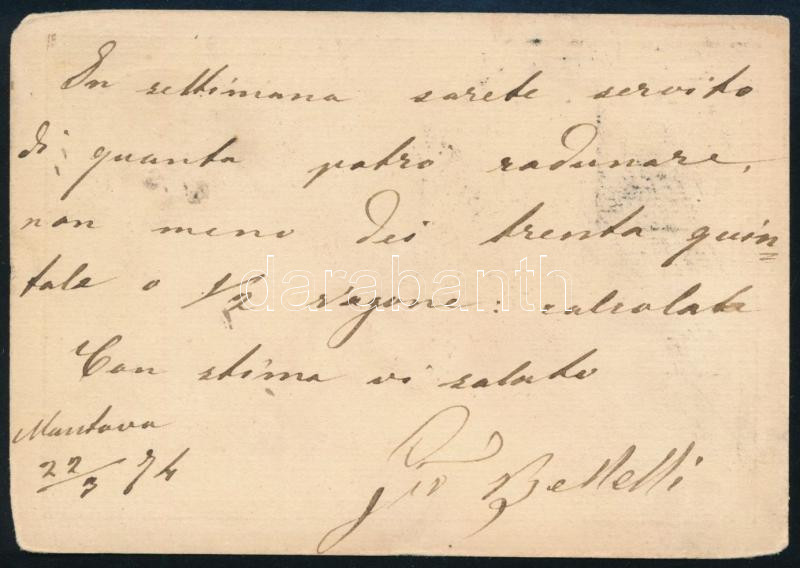 In settimana sarete servito
di quanta potrò radunare,
non meno dei trenta quin=
tale o 1/2 vagone: calcolate
Con stima vi saluto
Mantova
22/3 74
Gio Bettelli
darabanth